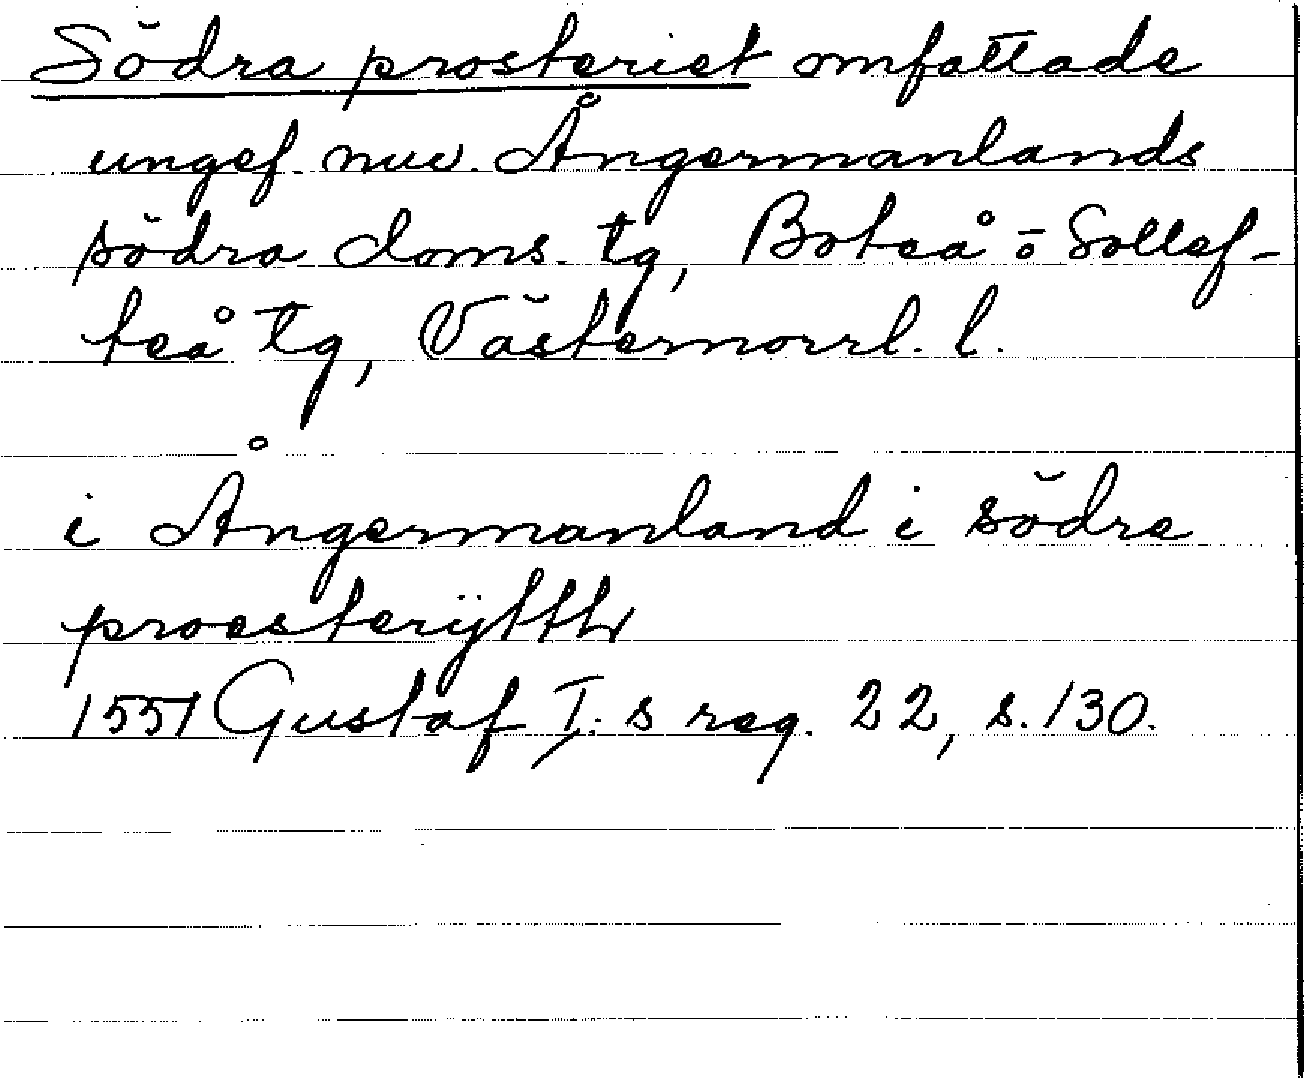 Södra prosteriet omfattade
ungef. nuv. Ångermanlands
södra doms. tg, Boteå o Sollef-
teå tg, Västernorrl. l.
i Ångermanland i södre
proesterÿtth
1551 Gustaf I:s reg. 22, s. 130.